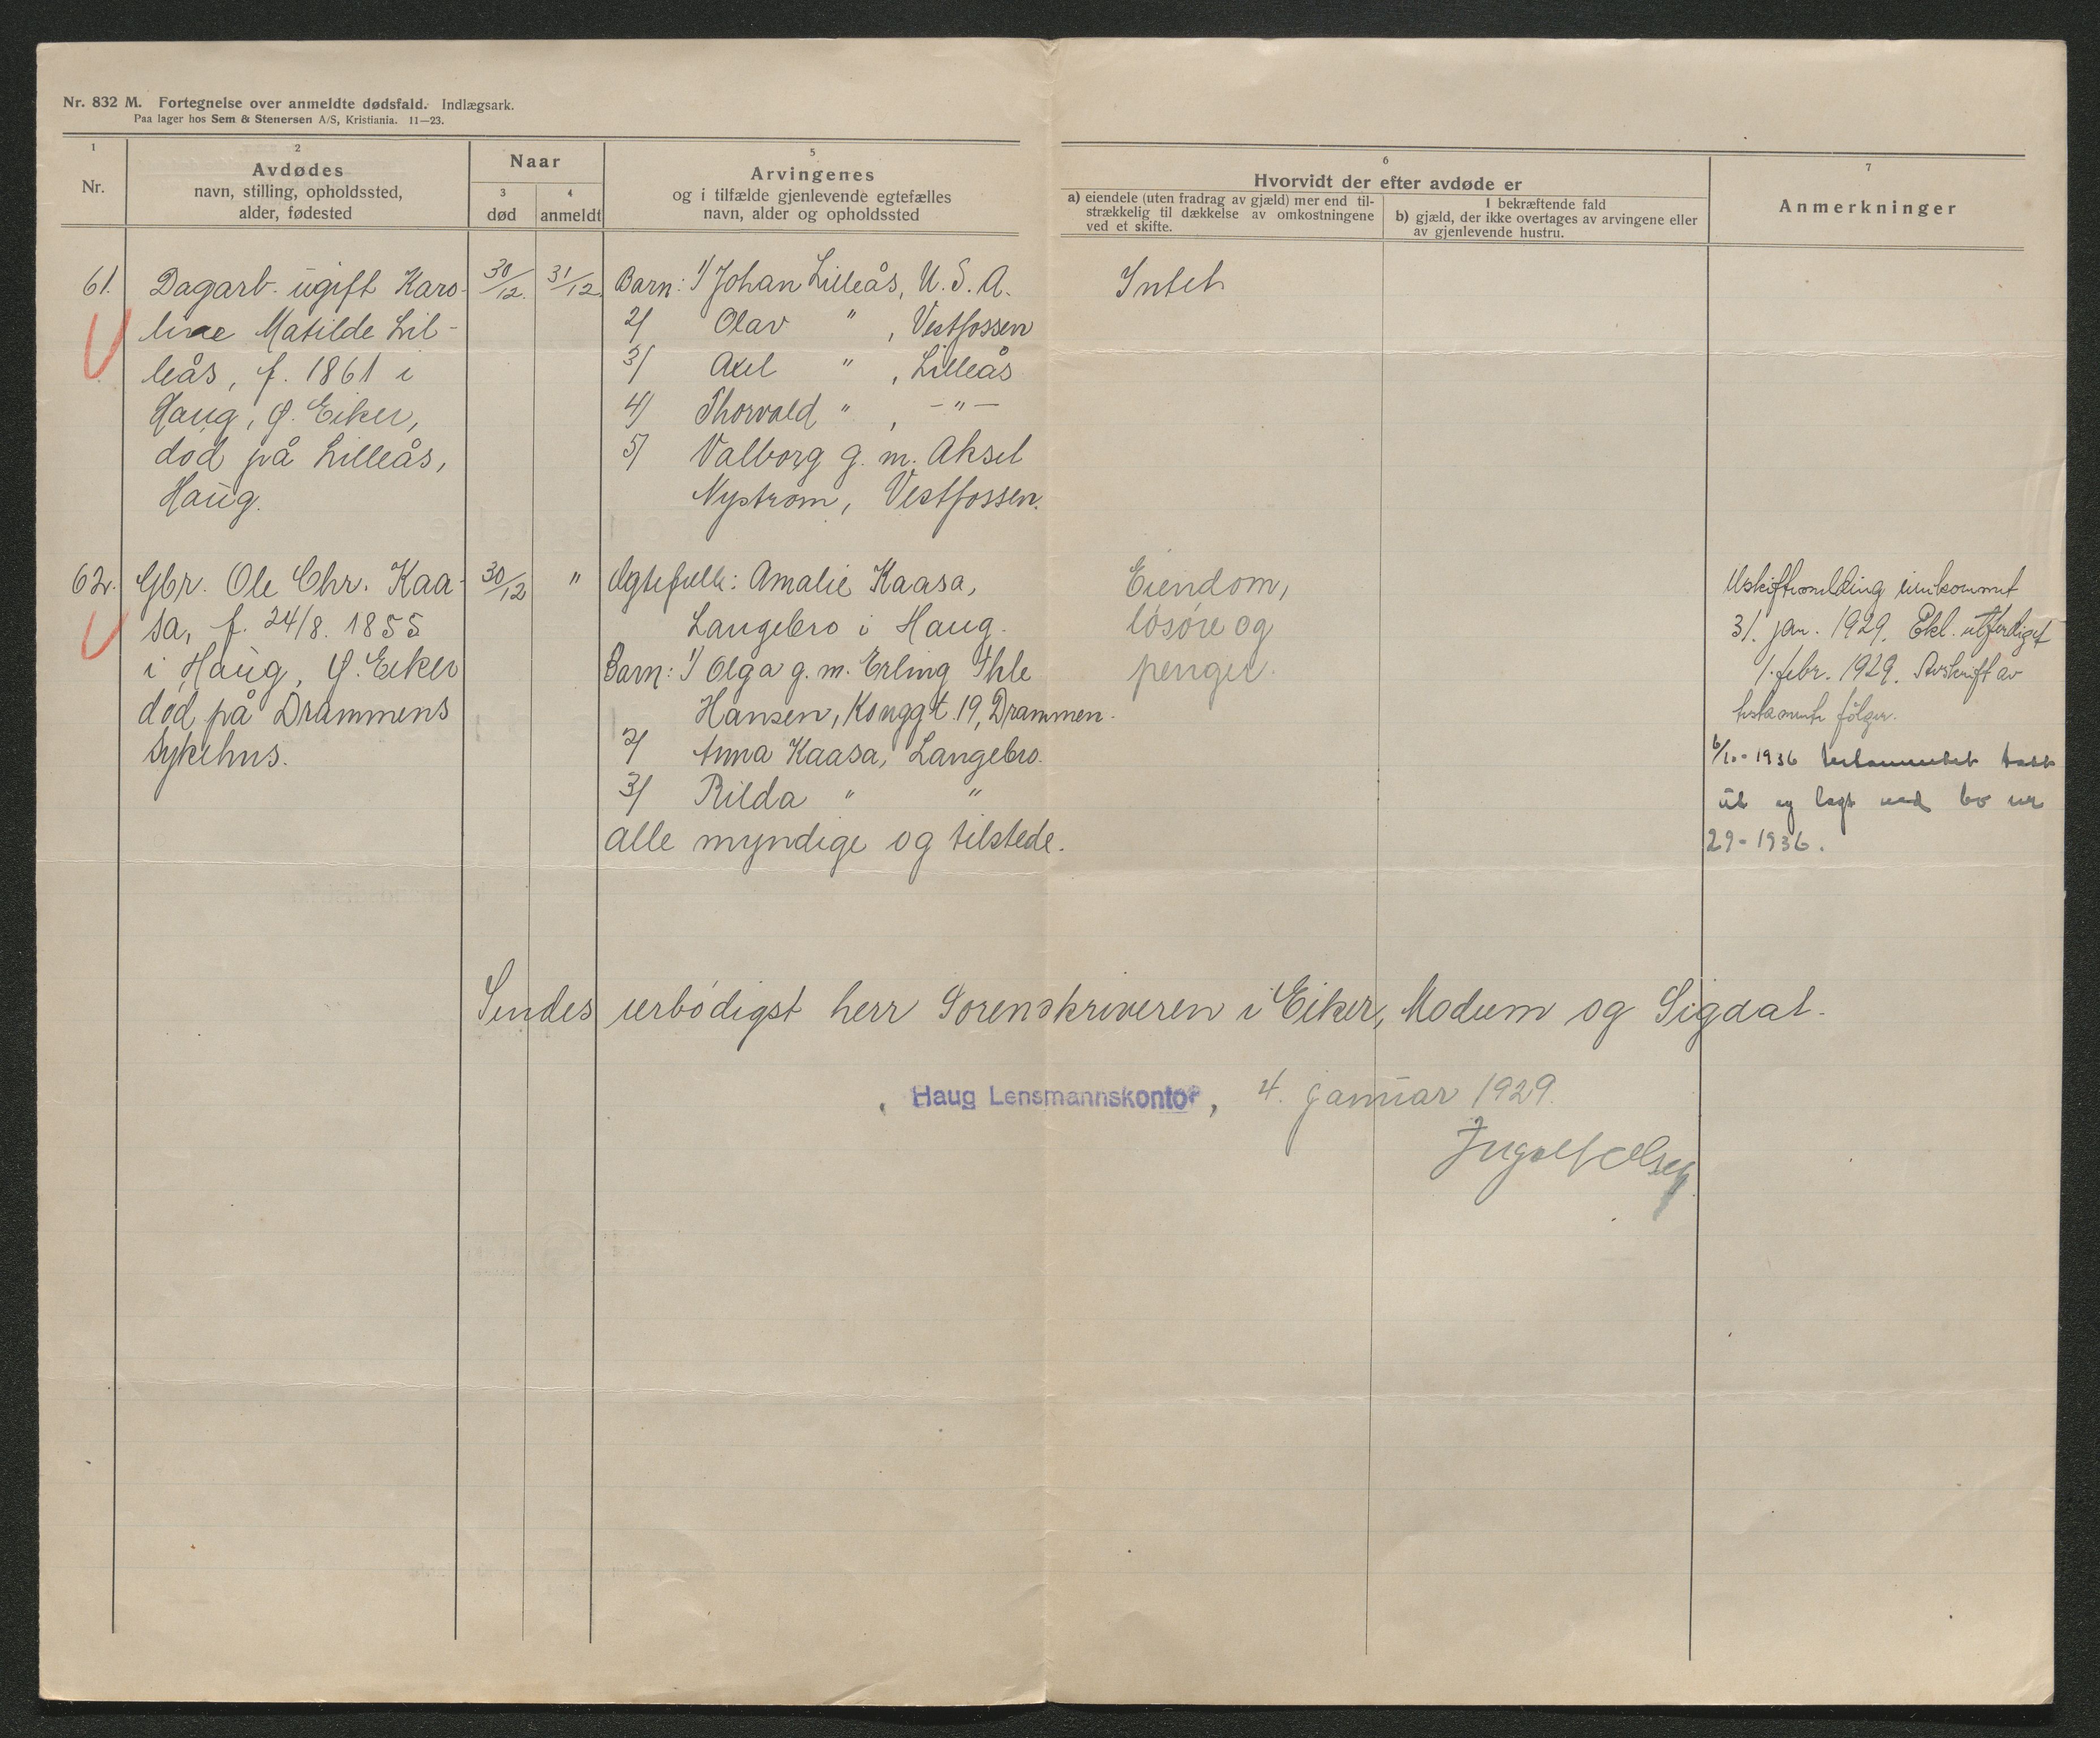 Nr. 832 M. Fortegnelse over anmeldte dødsfald. Indlægsark.
Paa lager hos Sem & Stenersen A/S, Kristiania. 11—23.
1
Nr.
2
Avdødes
navn, stilling, opholdssted,
alder, fødested
Naar
3
død
4
anmeldt
5
Arvingenes
og i tilfælde gjenlevende egtefælles
navn, alder og opholdssted
6
Hvorvidt der efter avdøde er
a) eiendele (uten fradrag av gjæld) mer end til-
strækkelig til dækkelse av omkostningene
ved et skifte.
I bekræftende fald
b) gjæld, der ikke overtages av arvingene eller
av gjenlevende hustru.
7
Anmerkninger
61.
Dagarb. ugift Karo-
line Matilde Lil-
leås, f. 1861 i
Haug, Ø. Eiker,
død på Lilleås,
Haug.
30/12.
31/12.
Barn: 1/ Johan Lilleås, U.S.A.
2/ Olav " , Vestfossen
3/ Axel " , Lilleås
4/ Thorvald " , -"-
5/ Valborg g. m. Aksel
Nystrøm, Vestfossen.
Intet
62.
Gbr. Ole Chr. Kaa-
sa, f. 24/8. 1855
i Haug, Ø. Eiker
død på Drammens
sykehus.
30/12
"
Egtefelle: Amalie Kaasa,
Langebro i Haug.
Barn: 1/ Olga g. m. Erling Ihle
Hansen, Konggt. 19, Drammen.
2/ Anna Kaasa, Langebro.
3/ Rilda " "
alle myndige og tilstede.
Eiendom,
løsøre og
penger.
Uskiftemelding innkommet
31. jan. 1929. Ekl. utferdiget
1. febr. 1929. Avskrift av
testamente følger.
6/10-1936 testamentet tatt
ut og lagt ved bo nr
29-1936.
Sendes ærbødigst herr Sorenskriveren i Eiker, Modum og Sigdal.
Haug Lensmannskontor, 4. januar 1929.
Ingolf Olsen